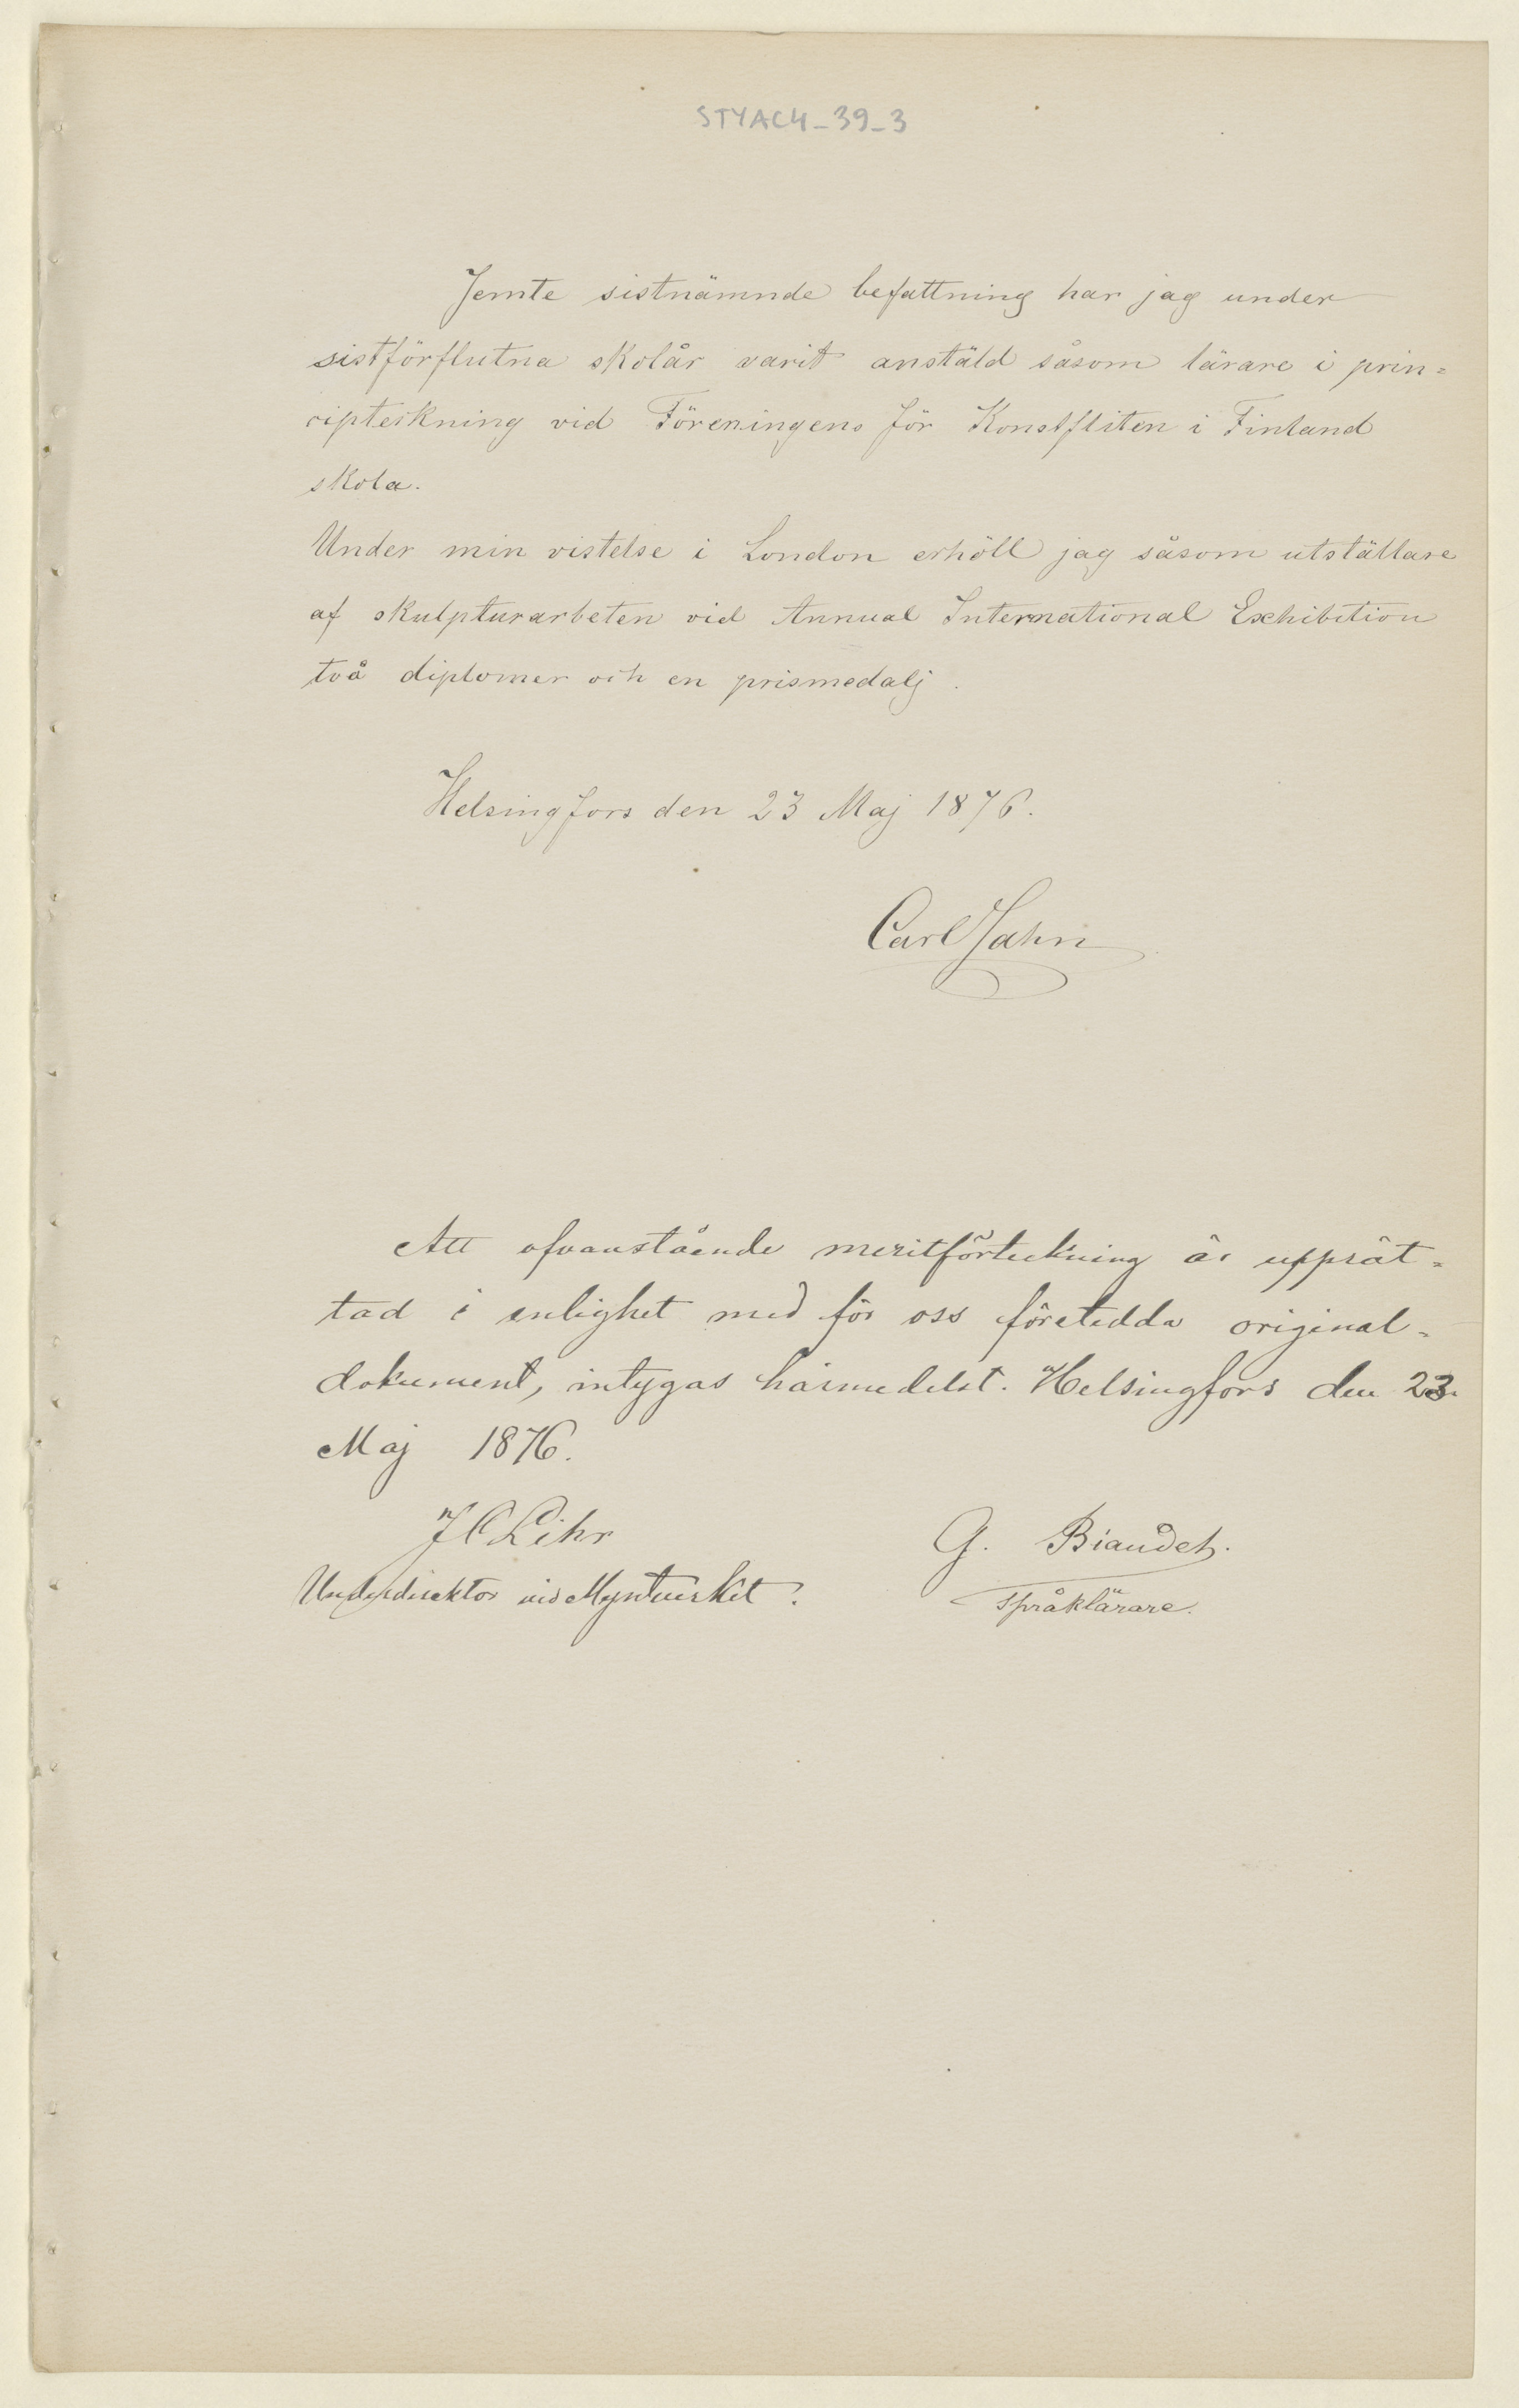 STYAC4_39_3
Jemte sistnämnde befattning har jag under
sistförflutna skolår varit anstäld såsom lärare i prin=
cipteikning vid Föreningens för Konstfliten i Finland
skola.
Under min vistelse i London erhöll jag såsom utställare
af skulpturarbeten vid Annual International Exhibition
två diplomer och en prismedalj.
Helsingfors den 23 Maj 1876.
Carl Jahn
Att ofvanstående meritförteckning är upprät=
tad i enlighet med för oss företedda original=
dokument, intygas härmedelst. Helsingfors den 23
Maj 1876.
J C Lihr
G. Biaudet.
Underdirektor vid Myntverket.
språklärare.